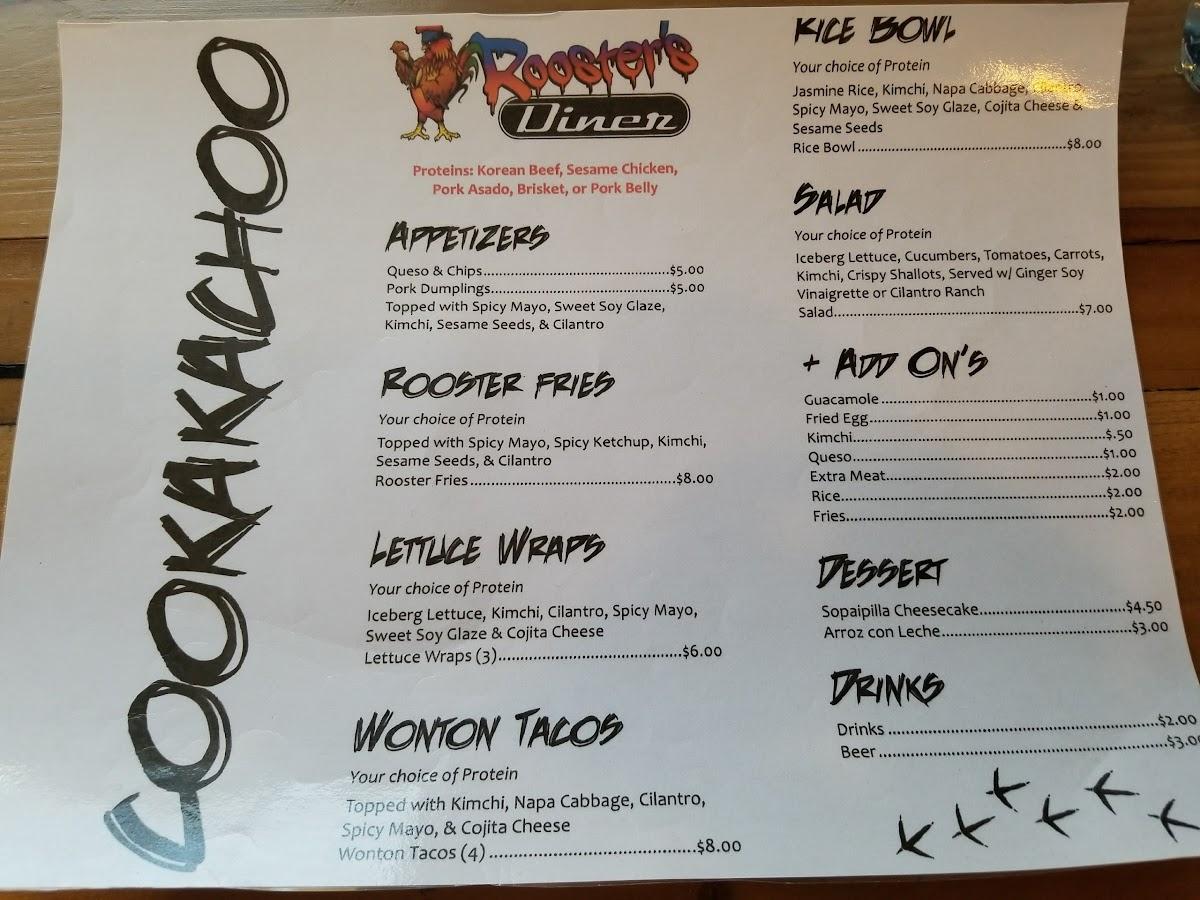 COOKAKACHOO
Rooster's
Diner
Proteins: Korean Beef, Sesame Chicken,
Pork Asado, Brisket, or Pork Belly
APPETIZERS
Queso & Chips..........$5.00
Pork Dumplings..........$5.00
Topped with Spicy Mayo, Sweet Soy Glaze,
Kimchi, Sesame Seeds, & Cilantro
ROOSTER FRIES
Your choice of Protein
Topped with Spicy Mayo, Spicy Ketchup, Kimchi,
Sesame Seeds, & Cilantro
Rooster Fries..........$8.00
LETTUCE WRAPS
Your choice of Protein
Iceberg Lettuce, Kimchi, Cilantro, Spicy Mayo,
Sweet Soy Glaze & Cojita Cheese
Lettuce Wraps (3)..........$6.00
WONTON TACOS
Your choice of Protein
Topped with Kimchi, Napa Cabbage, Cilantro,
Spicy Mayo, & Cojita Cheese
Wonton Tacos (4)..........$8.00
RICE BOWL
Your choice of Protein
Jasmine Rice, Kimchi, Napa Cabbage, Cilantro,
Spicy Mayo, Sweet Soy Glaze, Cojita Cheese &
Sesame Seeds
Rice Bowl..........$8.00
SALAD
Your choice of Protein
Iceberg Lettuce, Cucumbers, Tomatoes, Carrots,
Kimchi, Crispy Shallots, Served w/ Ginger Soy
Vinaigrette or Cilantro Ranch
Salad..........$7.00
+ ADD ON'S
Guacamole..........$1.00
Fried Egg..........$1.00
Kimchi..........$.50
Queso..........$1.00
Extra Meat..........$2.00
Rice..........$2.00
Fries..........$2.00
DESSERT
Sopaipilla Cheesecake..........$4.50
Arroz con Leche..........$3.00
DRINKS
Drinks..........$2.00
Beer..........$3.00